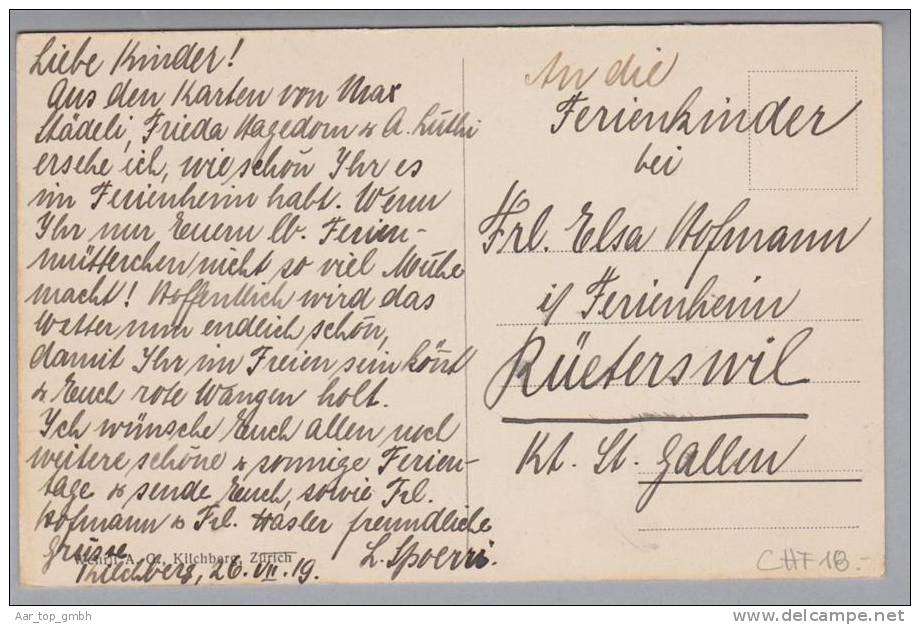 Liebe Kinder!
Aus den Karten von Max
Städeli, Frieda Hagedorn & A. Lüthi
ersehe ich, wie schön Ihr es
im Ferienheim habt. Wenn
Ihr nur Euern lb. Ferien-
mütterchen nicht so viel Mühe
macht! Hoffentlich wird das
Wetter nun endlich schön,
damit Ihr im Freien sein könnt
& Euch rote Wangen holt.
Ich wünsche Euch allen noch
weitere schöne & sonnige Ferien-
tage & sende Euch, sowie Frl.
Hofmann & Frl. Hasler freundliche
Grüsse
L. Spoerri.
Kilchberg, 26. VII. 19.
Wehrli A. G., Kilchberg, Zürich
An die
Ferienkinder
bei
Frl. Elsa Hofmann
i/ Ferienheim
Rüeterswil
Kt. St. Gallen
CHF 18.-
Aar_top_gmbh
www.delcampe.net